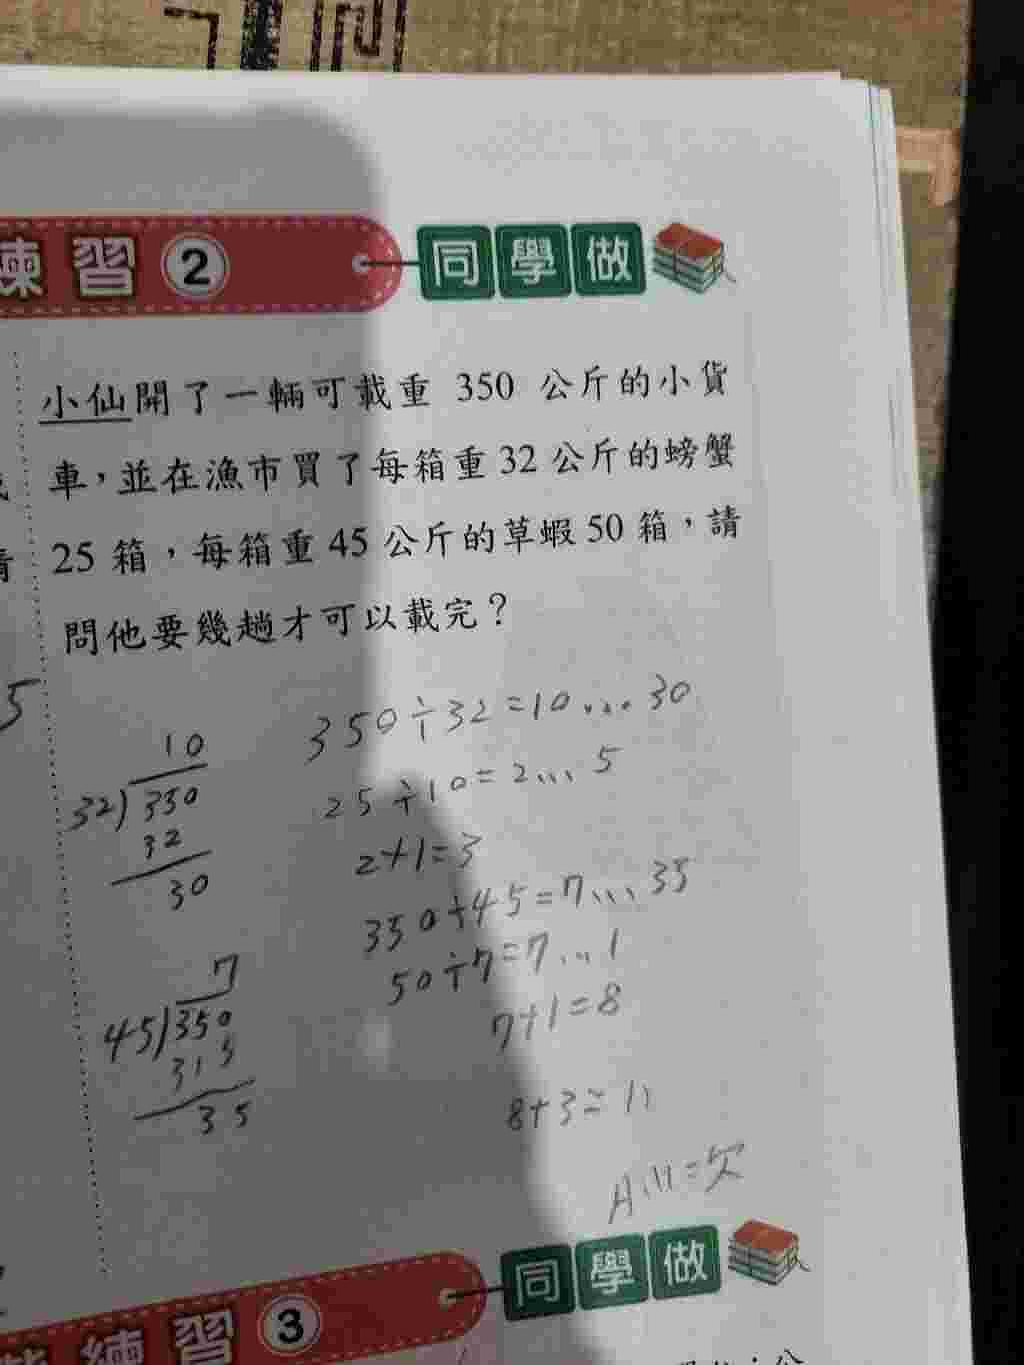 練習2 同學做
小仙開了一輛可載重 350 公斤的小貨
車，並在漁市買了每箱重 32 公斤的螃蟹
25 箱，每箱重 45 公斤的草蝦 50 箱，請
問他要幾趟才可以載完？
5
10
32)350
32
30
7
45)350
315
35
350÷32=10...30
25÷10=2...5
2+1=3
350÷45=7...35
50÷7=7...1
7+1=8
8+3=11
A:11=次
練習3 同學做